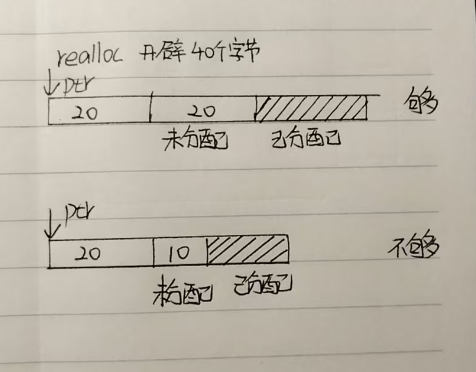 realloc 开辟 40个字节
ptr
20 20 够
未分配 已分配
ptr
20 10 不够
未分配 已分配